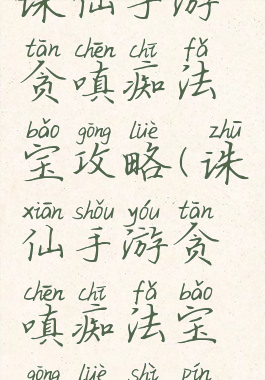 诛仙手游
tān chēn chī fǎ
贪嗔痴法
bǎo gōng lüè zhū
宝攻略(诛
xiān shǒu yóu tān
仙手游贪
chēn chī fǎ bǎo
嗔痴法宝
gōng lüè shì pín